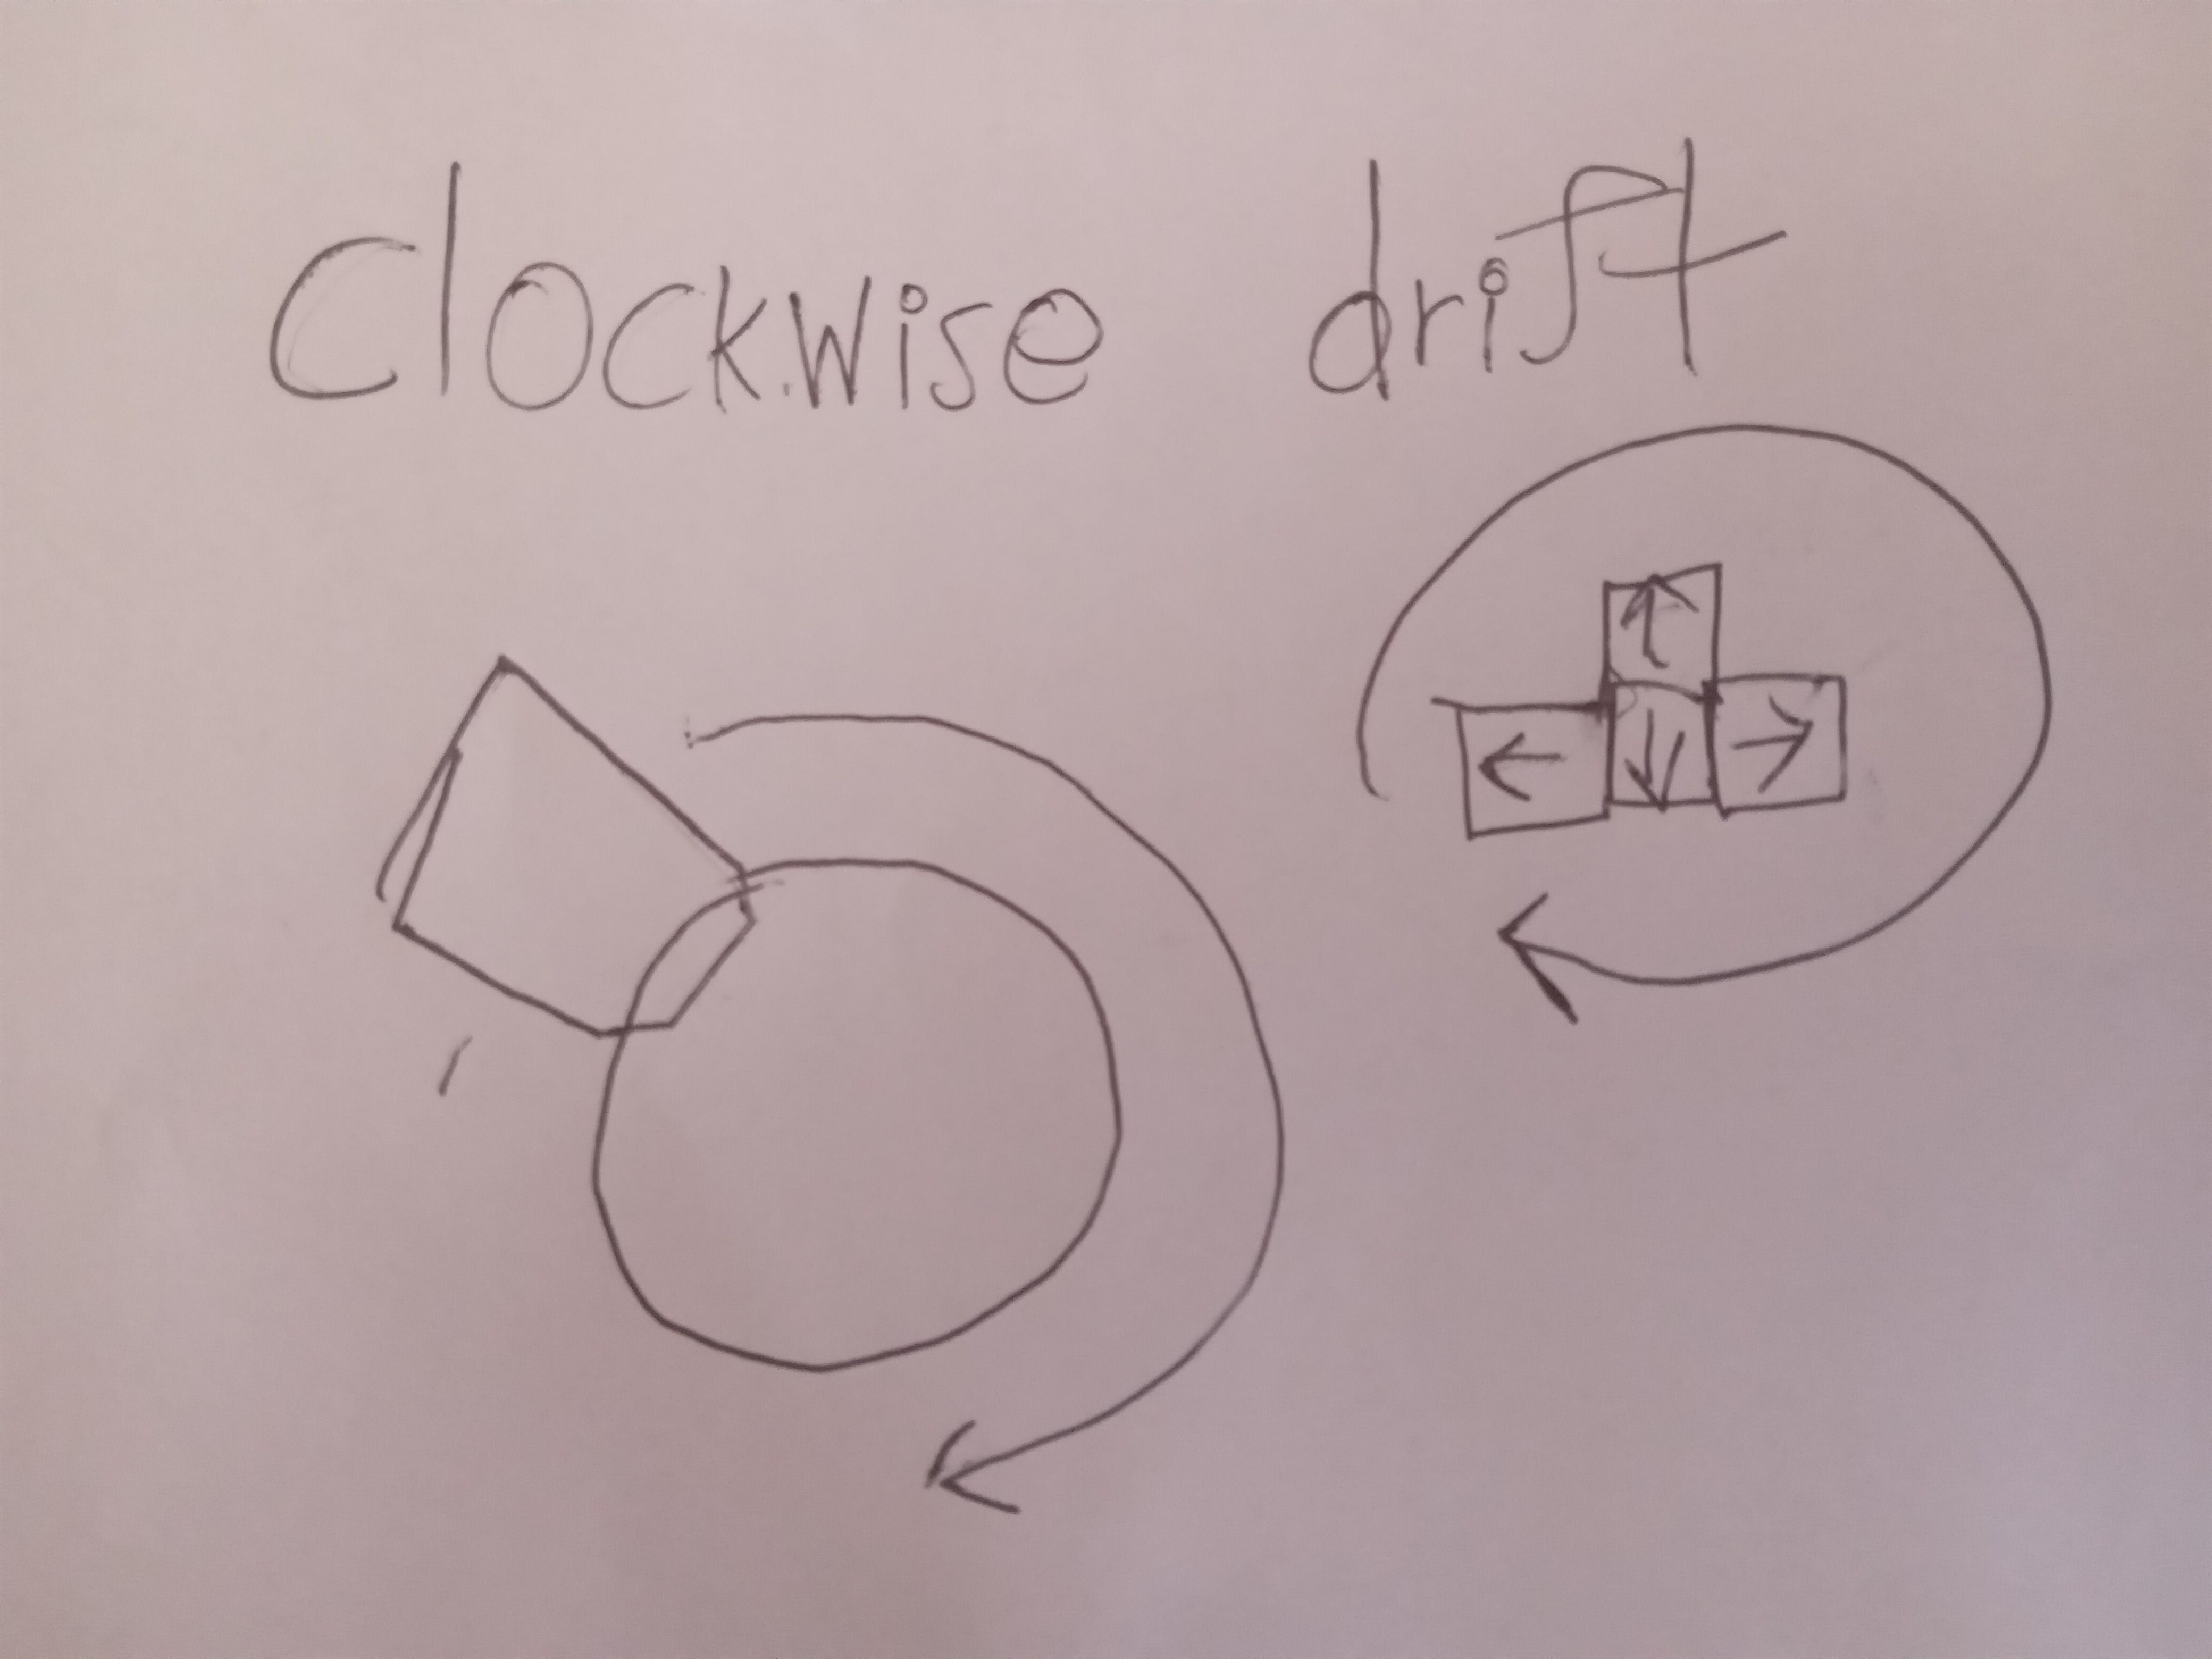 clockwise drift